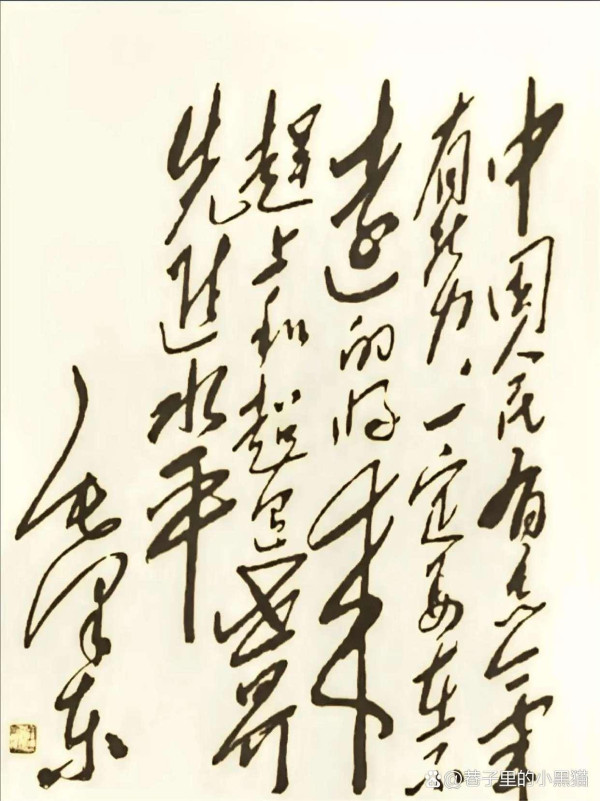 中國人民有志氣
有能力、一定要在不
遠的将来
趕上和超過世界
先進水平
毛澤东
@巷子里的小黑猫